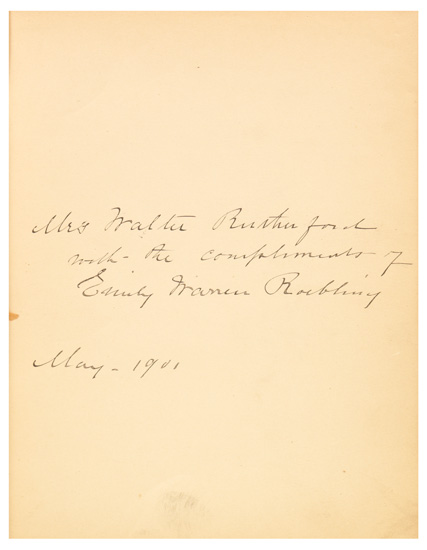 Mrs Walter Rutherford
with the compliments of
Emily Warren Roebling
May - 1901